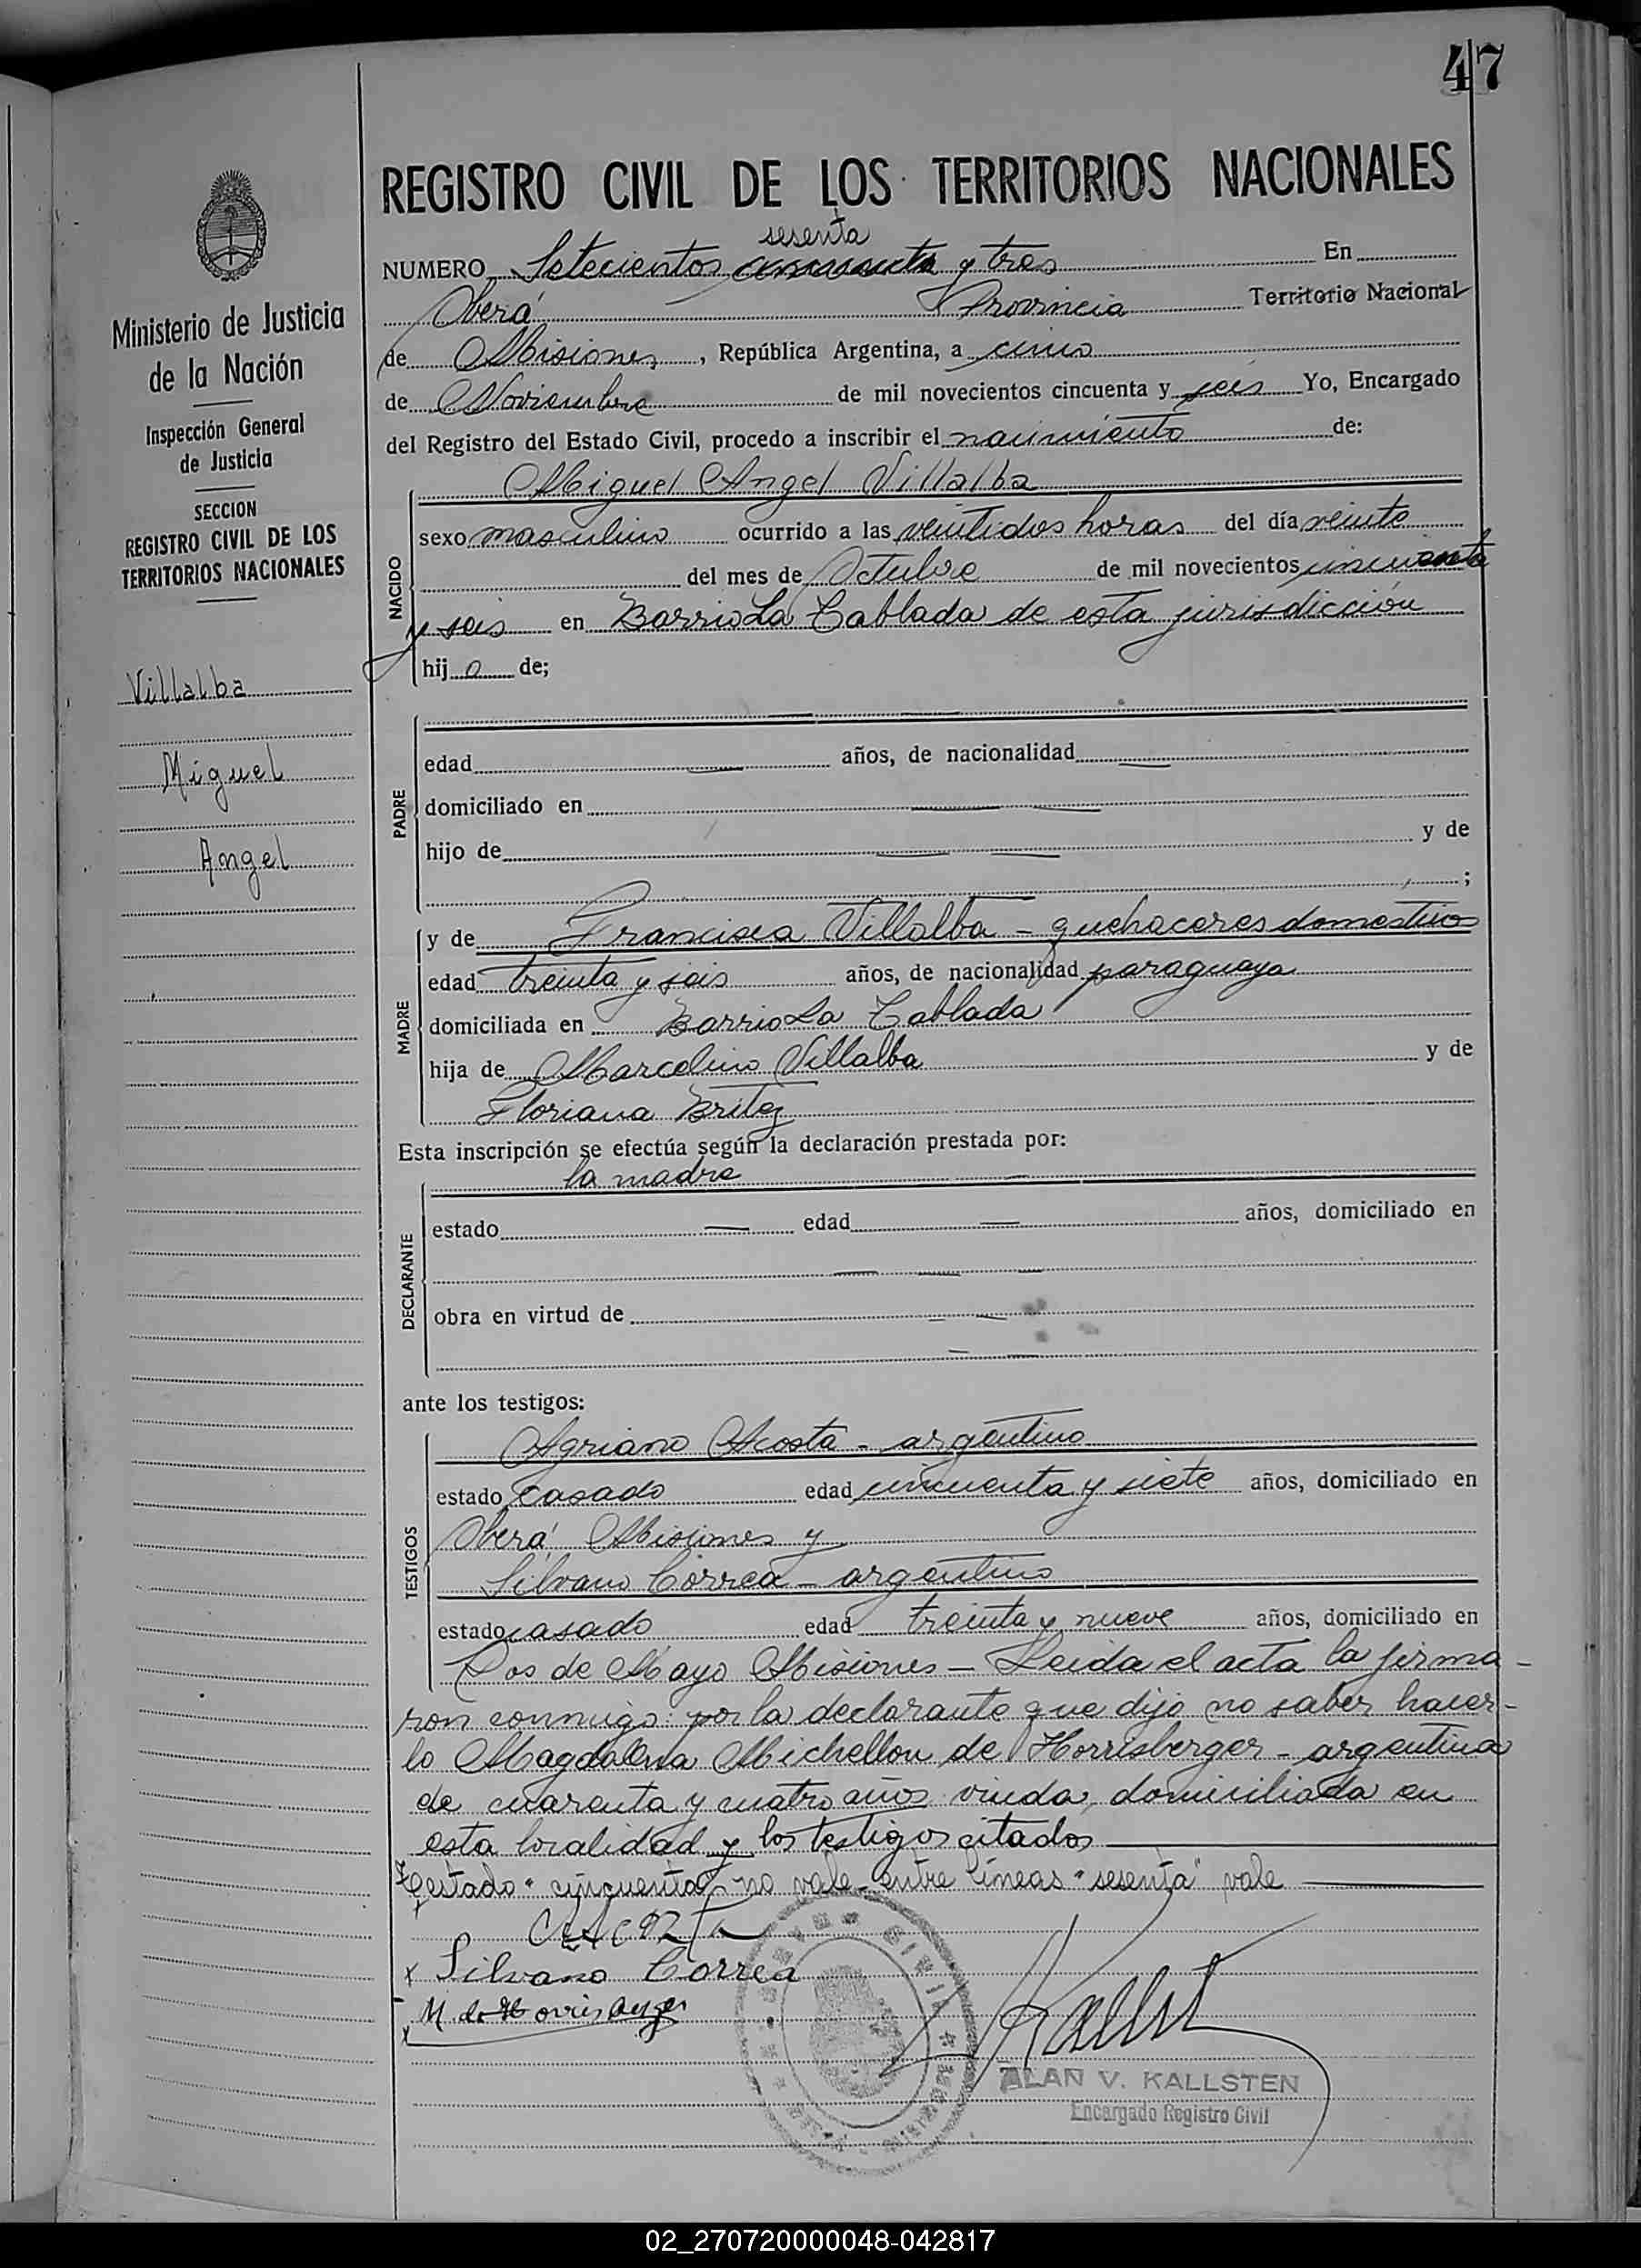 47
REGISTRO CIVIL DE LOS TERRITORIOS NACIONALES
sesenta
NUMERO Setecientos cincuenta y tres En
Oberá Provincia Territorio Nacional
de Misiones, República Argentina, a cinco
de Noviembre de mil novecientos cincuenta y seis Yo, Encargado
del Registro del Estado Civil, procedo a inscribir el nacimiento de:
Miguel Angel Villalba
NACIDO
sexo masculino ocurrido a las veintidos horas del día veinte
del mes de Octubre de mil novecientos cincuenta
y seis en Barrio La Tablada de esta jurisdicción
hij o de;
PADRE
edad años, de nacionalidad
domiciliado en
hijo de y de
;
MADRE
y de Francisca Villalba - quehaceres domesticos
edad treinta y seis años, de nacionalidad paraguaya
domiciliada en Barrio La Tablada
hija de Marcelino Villalba y de
Floriana Britez
Esta inscripción se efectúa según la declaración prestada por:
la madre
DECLARANTE
estado edad años, domiciliado en
obra en virtud de
ante los testigos:
TESTIGOS
Agriano Acosta - argentino
estado casado edad cincuenta y siete años, domiciliado en
Oberá Misiones y
Silvano Correa - argentino
estado casado edad treinta y nueve años, domiciliado en
Dos de Mayo Misiones - Leida el acta la firma-
ron conmigo: por la declarante que dijo no saber hacer-
lo Magdalena Michellon de Horrisberger - argentina
de cuarenta y cuatro años viuda, domiciliada en
esta localidad y los testigos citados
Testado "cincuenta" no vale - entre líneas "sesenta" vale
x Silvano Correa
x M. de Horrisberger
Kallst
ALAN V. KALLSTEN
Encargado Registro Civil
Ministerio de Justicia
de la Nación
Inspección General
de Justicia
SECCION
REGISTRO CIVIL DE LOS
TERRITORIOS NACIONALES
Villalba
Miguel
Angel
02_270720000048-042817